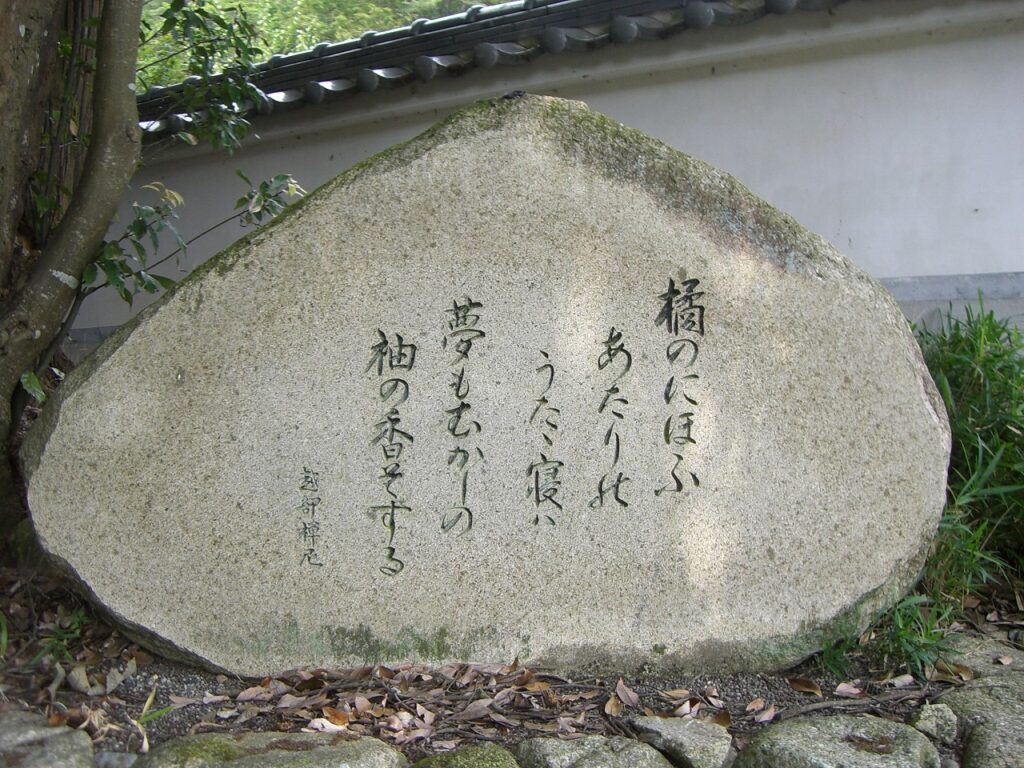 橘のにほふ
あたりの
うたゝ寝ハ
夢もむかしの
袖の香そする
越部禅尼